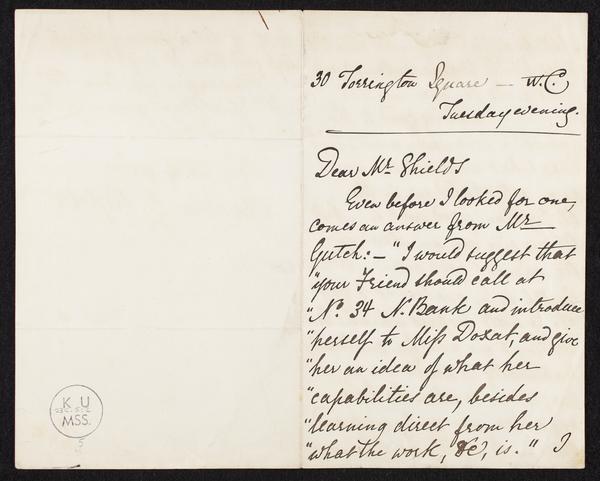 30 Torrington Square — W.C.
Tuesday evening.
Dear Mr. Shields
Even before I looked for one,
comes an answer from Mr
Gutch: — "I would suggest that
"your Friend should call at
"No. 34 N. Bank and introduce
"herself to Miss Doxat, and give
"her an idea of what her
"capabilities are, besides
"learning direct from her
"what the work, &c, is." I
K U
MSS.